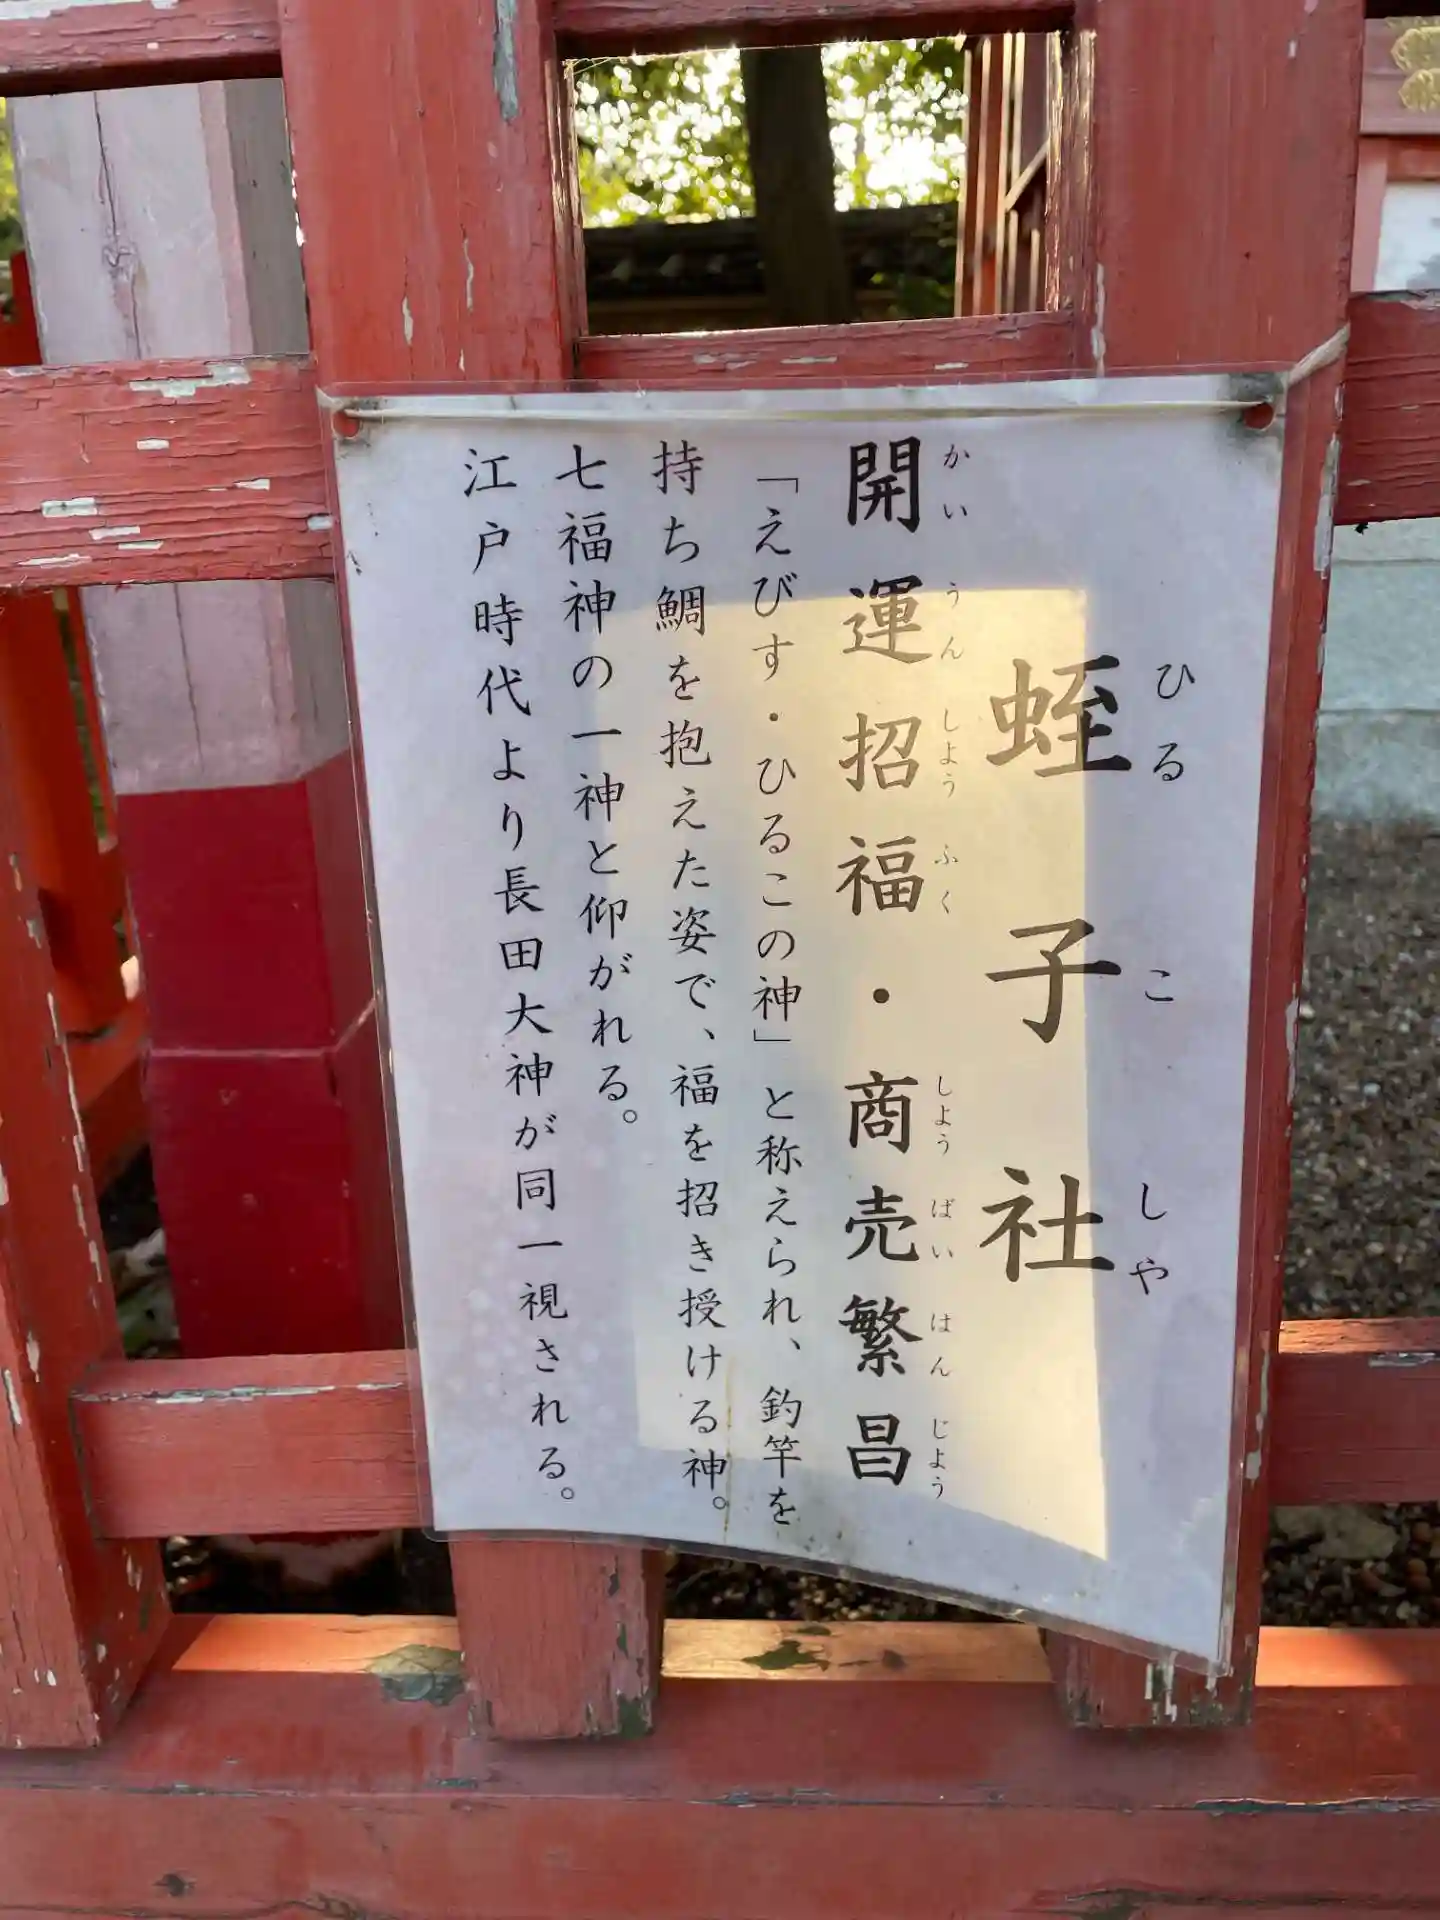 蛭子社
ひるこしや
開運招福・商売繁昌
かいうんしようふくしようばいはんじよう
「えびす・ひるこの神」と称えられ、釣竿を
持ち鯛を抱えた姿で、福を招き授ける神。
七福神の一神と仰がれる。
江戸時代より長田大神が同一視される。